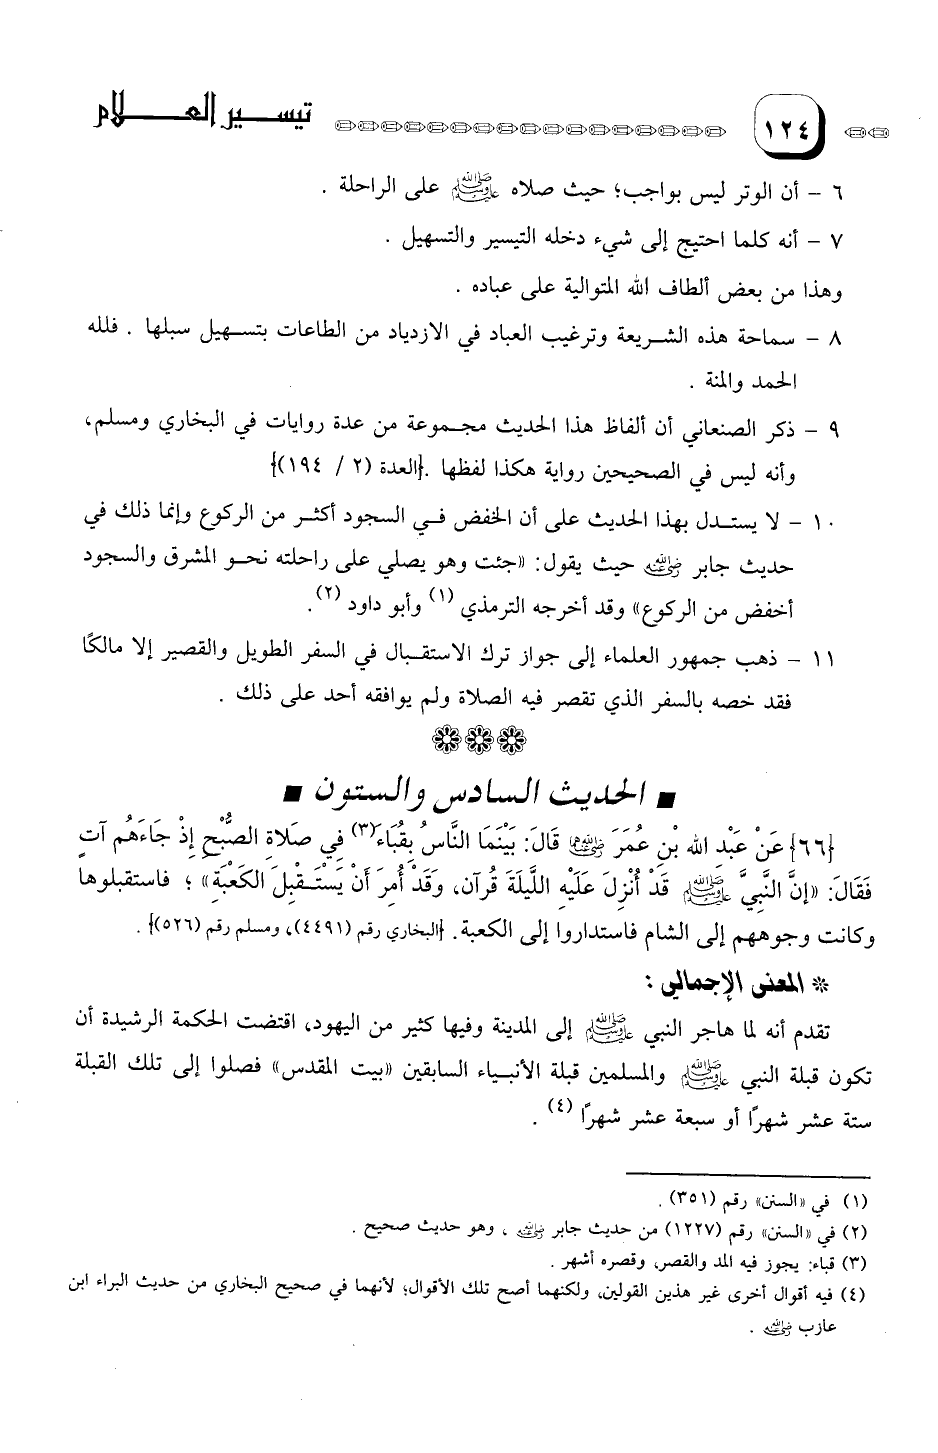 ١٢٤ تيسير العلام
٦ - أن الوتر ليس بواجب؛ حيث صلاه ﷺ على الراحلة .
٧ - أنه كلما احتيج إلى شيء دخله التيسير والتسهيل .
وهذا من بعض ألطاف الله المتوالية على عباده .
٨ - سماحة هذه الشريعة وترغيب العباد في الازدياد من الطاعات بتسهيل سبلها . فلله
الحمد والمنة .
٩ - ذكر الصنعاني أن ألفاظ هذا الحديث مجموعة من عدة روايات في البخاري ومسلم،
وأنه ليس في الصحيحين رواية هكذا لفظها .{العدة (٢ / ١٩٤)}
١٠ - لا يستدل بهذا الحديث على أن الخفض في السجود أكثر من الركوع وإنما ذلك في
حديث جابر رضي الله عنه حيث يقول: «جئت وهو يصلي على راحلته نحو المشرق والسجود
أخفض من الركوع» وقد أخرجه الترمذي (١) وأبو داود (٢).
١١ - ذهب جمهور العلماء إلى جواز ترك الاستقبال في السفر الطويل والقصير إلا مالكًا
فقد خصه بالسفر الذي تقصر فيه الصلاة ولم يوافقه أحد على ذلك .
■ الحديث السادس والستون ■
{٦٦} عَنْ عَبْدِ الله بْنِ عُمَرَ رضي الله عنهما قَالَ: بَيْنَمَا النَّاسُ بِقُبَاءَ(٣) فِي صَلاةِ الصُّبْحِ إِذْ جَاءَهُم آتٍ
فَقَالَ: «إِنَّ النَّبِيَّ ﷺ قَدْ أُنْزِلَ عَلَيْهِ اللَّيْلَةَ قُرآن، وَقَدْ أُمِرَ أَنْ يَسْتَقْبِلَ الكَعْبَةِ» ؛ فاستقبلوها
وكانت وجوههم إلى الشام فاستداروا إلى الكعبة. {البخاري رقم (٤٤٩١)، ومسلم رقم (٥٢٦)} .
* المعنى الإجمالي :
تقدم أنه لما هاجر النبي ﷺ إلى المدينة وفيها كثير من اليهود، اقتضت الحكمة الرشيدة أن
تكون قبلة النبي ﷺ والمسلمين قبلة الأنبياء السابقين «بيت المقدس» فصلوا إلى تلك القبلة
ستة عشر شهرًا أو سبعة عشر شهرًا (٤) .
(١) في «السنن» رقم (٣٥١) .
(٢) في «السنن» رقم (١٢٢٧) من حديث جابر رضي الله عنه ، وهو حديث صحيح .
(٣) قباء: يجوز فيه المد والقصر، وقصره أشهر .
(٤) فيه أقوال أخرى غير هذين القولين، ولكنهما أصح تلك الأقوال؛ لأنهما في صحيح البخاري من حديث البراء ابن
عازب رضي الله عنه .